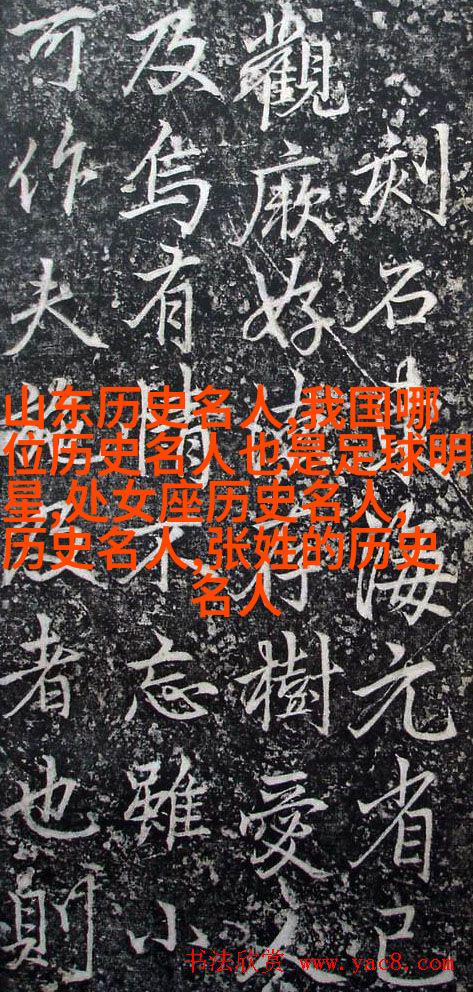 刻石海元省已
觀厥好樹愛
及焉有情不忘雖小
可作夫者也則
山东历史名人,我国哪
位历史名人也是足球明
星,处女座历史名人,
历史名人,张姓的历史
名人
书法欣赏 www.yac8.com